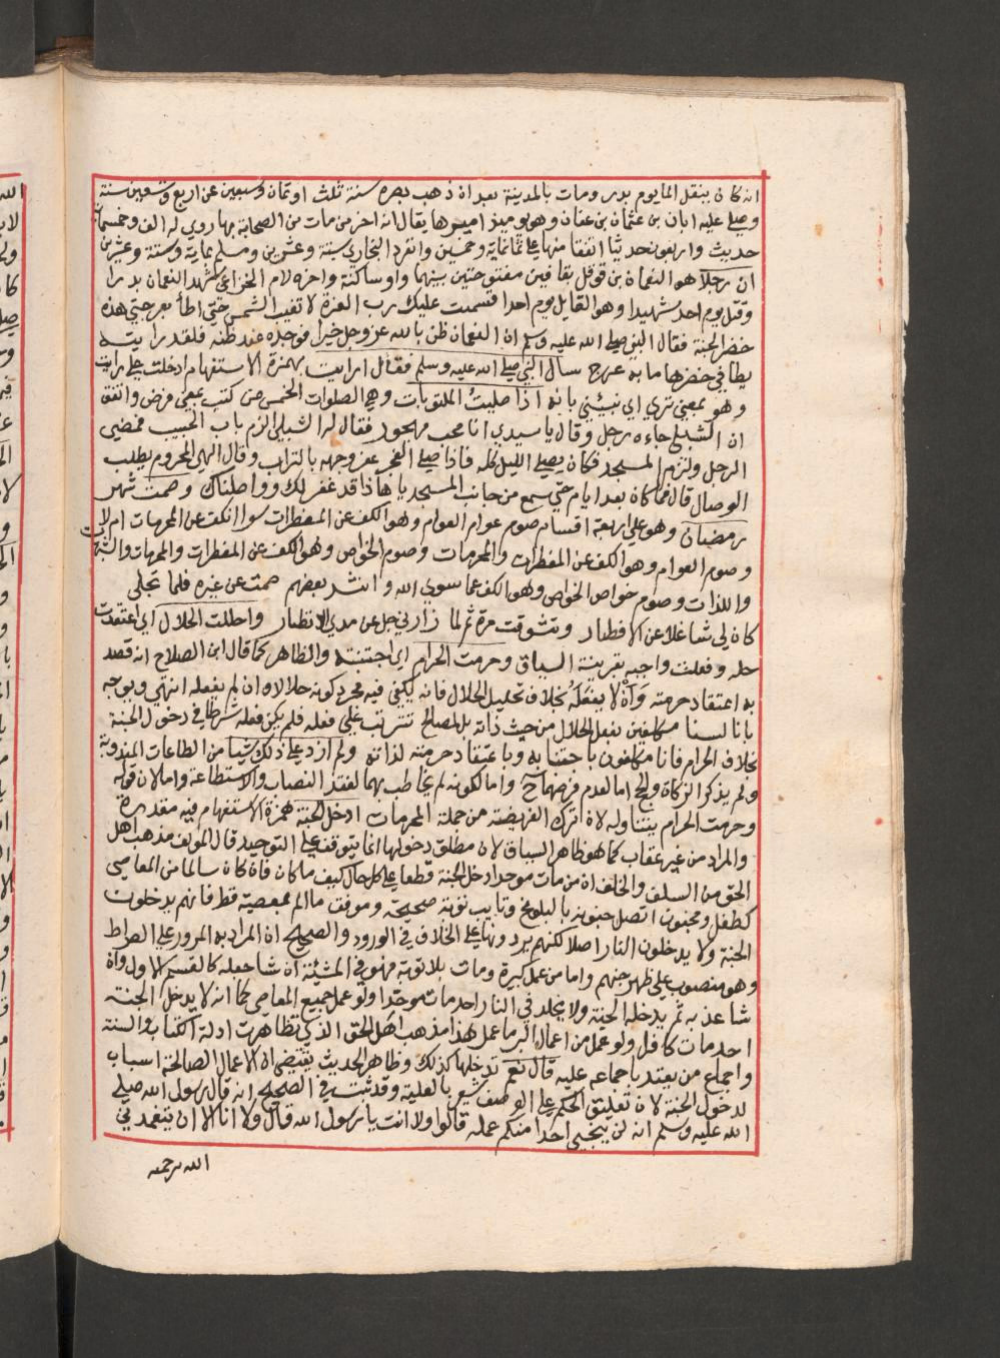 انه كان ينقل الما يوم بدر ومات بالمدينة بعد ان ذهب بصره سنة ثلث او ثمان وسبعين عن اربع وتسعين سنة
وصلي عليه ابان بن عثمان بن عفان وهو يوميذ اميرها يقال انه اخر من مات من الصحابة بها روي له الف وخمسماية
حديث واربعون حديثا اتفقا منها علي ثمانية وخمسين وانفرد البخاري بستة وعشرين ومسلم بماية وستة وعشرين
ان رجلا هو النعمان بن قوقل بقافين مفتوحتين بينهما واو ساكنة واخره لام الخزاعي شهد النعمان بدرا
وقتل يوم احد شهيدا وهو القايل يوم احد اقسمت عليك رب العزة لا تغيب الشمس حتي اطأ بعرجتي هذه
خضر الجنة فقال النبي صلي الله عليه وسلم ان النعمان ظن بالله عز وجل خيرا فوجده عند ظنه فلقد رايته
يطا في خضرها ما به عرج سال النبي صلي الله عليه وسلم فقال ارايت بهمزة الاستفهام ادخلت علي رايت
وهو بمعني تري اي نبيني بانه اذا صليت المكتوبات وهي الصلوات الخمس من كتب بمعني فرض واتفق
ان الشبلي جاءه رجل وقال يا سيدي انا محب مهجور فقال له الشبلي الزم باب الحبيب فمضي
الرجل ولزم المسجد فكان يصلي الليل كله فاذا صلي الفجر عفر وجهه بالتراب وقال الهي المحروم يطلب
الوصال قال فما كان بعد ايام حتي سمع من جانب المسجد يا هذا قد غفر لك وواصلناك وصمت شهر
رمضان وهو علي اربعة اقسام صوم عوام العوام وهو الكف عن المفطرات سوا انكف عن المحرمات ام لا
وصوم العوام وهو الكف عن المفطرات والمحرمات وصوم الخواص وهو الكف عن المفطرات والمحرمات والشبهات
واللذات وصوم خواص الخواص وهو الكف عما سوي الله وانشد بعضهم صمت عن غيره فلما تجلي
كان لي شاغلا عن الافطار وتشوقت مرة ثم لما زارني جل عن مدي الانتظار واحللت الحلال اي اعتقدت
حله وفعلت واجبه بقرينة السياق وحرمت الحرام اي اجتنبته والظاهر كما قال ابن الصلاح انه قصد
به اعتقاد حرمته وان لا يفعله بخلاف تحليل الحلال فانه يكفي فيه مجرد كونه حلالا وان لم يفعله انتهي ويوجه
بانا لسنا مكلفين بفعل الحلال من حيث ذاته بل لمصالح تترتب علي فعله فلم يكن فعله شرطا في دخول الجنة
بخلاف الحرام فانا مكلفون باجتنابه وباعتقاد حرمته لذاته ولم ازد علي ذلك شيا من الطاعات المندوبة
ولم يذكر الزكاة والحج اما لعدم فرضهما ح واما لكونه لم يخاطب بهما لفقد النصاب والاستطاعة واما لان قوله
وحرمت الحرام يتناوله لان ترك الفريضة من جملة المحرمات ادخل الجنة همزة الاستفهام فيه مقدرة
والمراد من غير عقاب كما هو ظاهر السياق لان مطلق دخولها انما يتوقف علي التوحيد قال المولف مذهب اهل
الحق من السلف والخلف ان من مات موحدا دخل الجنة قطعا علي كل حال كيف ما كان فان كان سالما من المعاصي
كطفل ومجنون اتصل جنونه بالبلوغ وتايب توبة صحيحة وموفق ما الم بمعصية قط فانهم يدخلون
الجنة ولا يدخلون النار اصلا لكنهم يردونها علي الخلاف في الورود والصحيح ان المراد به المرور علي الصراط
وهو منصوب علي ظهر جهنم واما من عمل كبيرة ومات بلا توبة فهو في المشيئة ان شا جعله كالقسم الاول وان
شا عذبه ثم يدخله الجنة ولا يخلد في النار احد مات موحدا ولو عمل جميع المعاصي كما انه لا يدخل الجنة
احد مات كافرا ولو عمل من اعمال البر ما عمل هذا مذهب اهل الحق الذي تظاهرت ادلة الكتاب والسنة
واجماع من يعتد باجماعه عليه قال نعم تدخلها كذلك وظاهر الحديث يقتضي ان الاعمال الصالحة اسباب
لدخول الجنة لان تعليق الحكم علي الوصف يشعر بالعلية وقد ثبت في الصحيح انه قال رسول الله صلي
الله عليه وسلم انه لن ينجي احدا منكم عمله قالوا ولا انت يا رسول الله قال ولا انا الا ان يتغمدني
الله برحمه